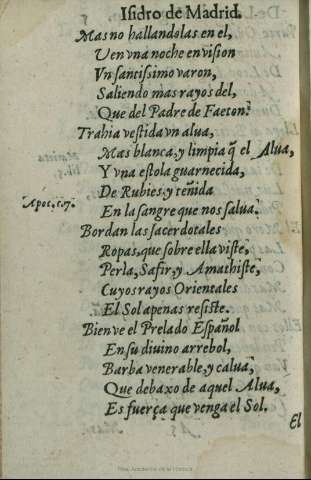 Isidro de Madrid.
Mas no hallandolas en el,
Uen vna noche en vision
Vn santissimo varon,
Saliendo mas rayos del,
Que del Padre de Faeton.
Trahia vestida vn alua,
Mas blanca, y limpia q̃ el Alua,
Y vna estola guarnecida,
De Rubies, y teñida
Apoc. c. 7.
En la sangre que nos salua.
Bordan las sacerdotales
Ropas, que sobre ella viste,
Perla, Safir, y Amathiste,
Cuyos rayos Orientales
El Sol apenas resiste.
Bien ve el Prelado Español
En su diuino arrebol,
Barba venerable, y calua,
Que debaxo de aquel Alua,
Es fuerça que venga el Sol.
El